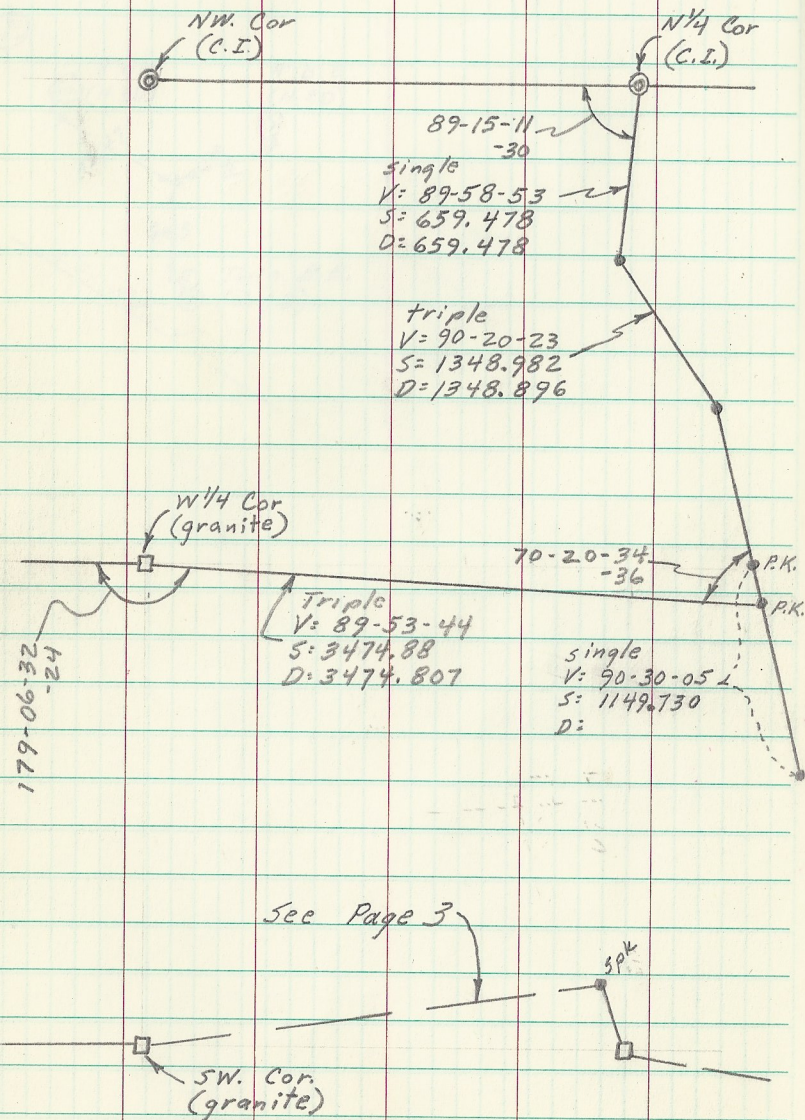 NW. Cor
(C.I.)
N 1/4 Cor
(C.I.)
89-15-11
-30
single
V= 89-58-53
S= 659.478
D= 659.478
triple
V= 90-20-23
S= 1348.982
D= 1348.896
W 1/4 Cor
(granite)
70-20-34
-36
P.K.
P.K.
Triple
V= 89-53-44
S= 3474.88
D= 3474.807
179-06-32
-24
single
V= 90-30-05
S= 1149.730
D=
See Page 3
SPK
SW. Cor.
(granite)